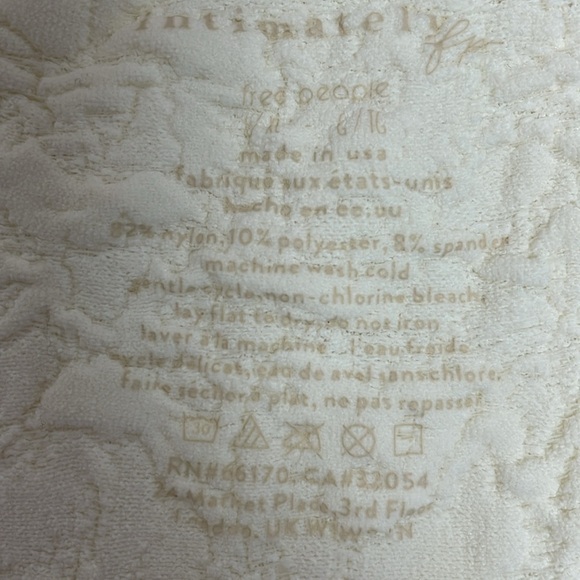 intimately
fp
free people
made in usa
fabriqué aux états-unis
hecho en ee:uu
82% nylon, 10% polyester, 8% spandex
machine wash cold
gentle cycle, non-chlorine bleach,
lay flat to dry, do not iron
laver à la machine à l'eau froide
cycle délicat, eau de avel sans chlore,
faire sécher à plat, ne pas repasser
30
RN#66170, CA#32054
2A Market Place, 3rd Floor
UK